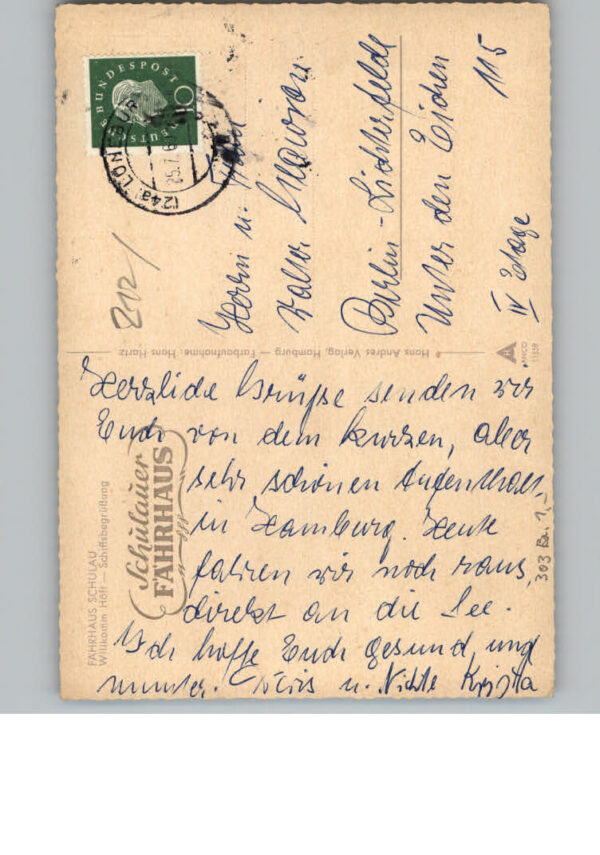 Herzliche Grüße senden wir
Euch von dem kurzen, aber
sehr schönen Aufenthalt
in Hamburg. Heute
fahren wir noch raus,
direkt an die See.
Ich hoffe Euch gesund, und
munter. u. Nichte Krista
Herrn u.
Walter
Berlin-Lichterfelde
Unter den Eichen 115
IV Etage
DEUTSCHE BUNDESPOST
10
202/
303 1,-
Hans Andres Verlag, Hamburg — Farbaufnahme: Hans Hartz
ANCO
FÄHRHAUS SCHULAU
Willkomm Höft — Schiffsbegrüßung
Schulauer
FÄHRHAUS